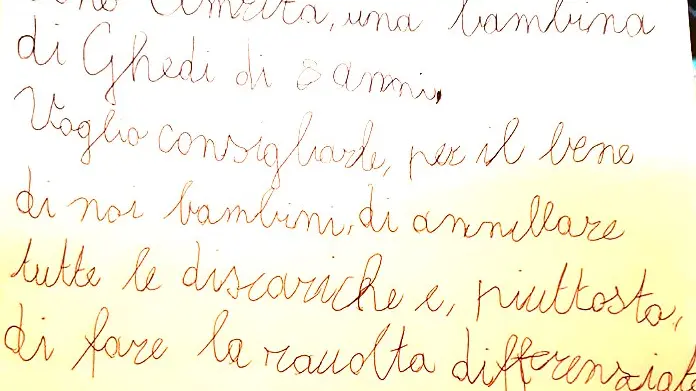 sono Amrita, una bambina
di Ghedi di 8 anni.
Voglio consigliarle, per il bene
di noi bambini, di annullare
tutte le discariche e, piuttosto,
di fare la raccolta differenziat